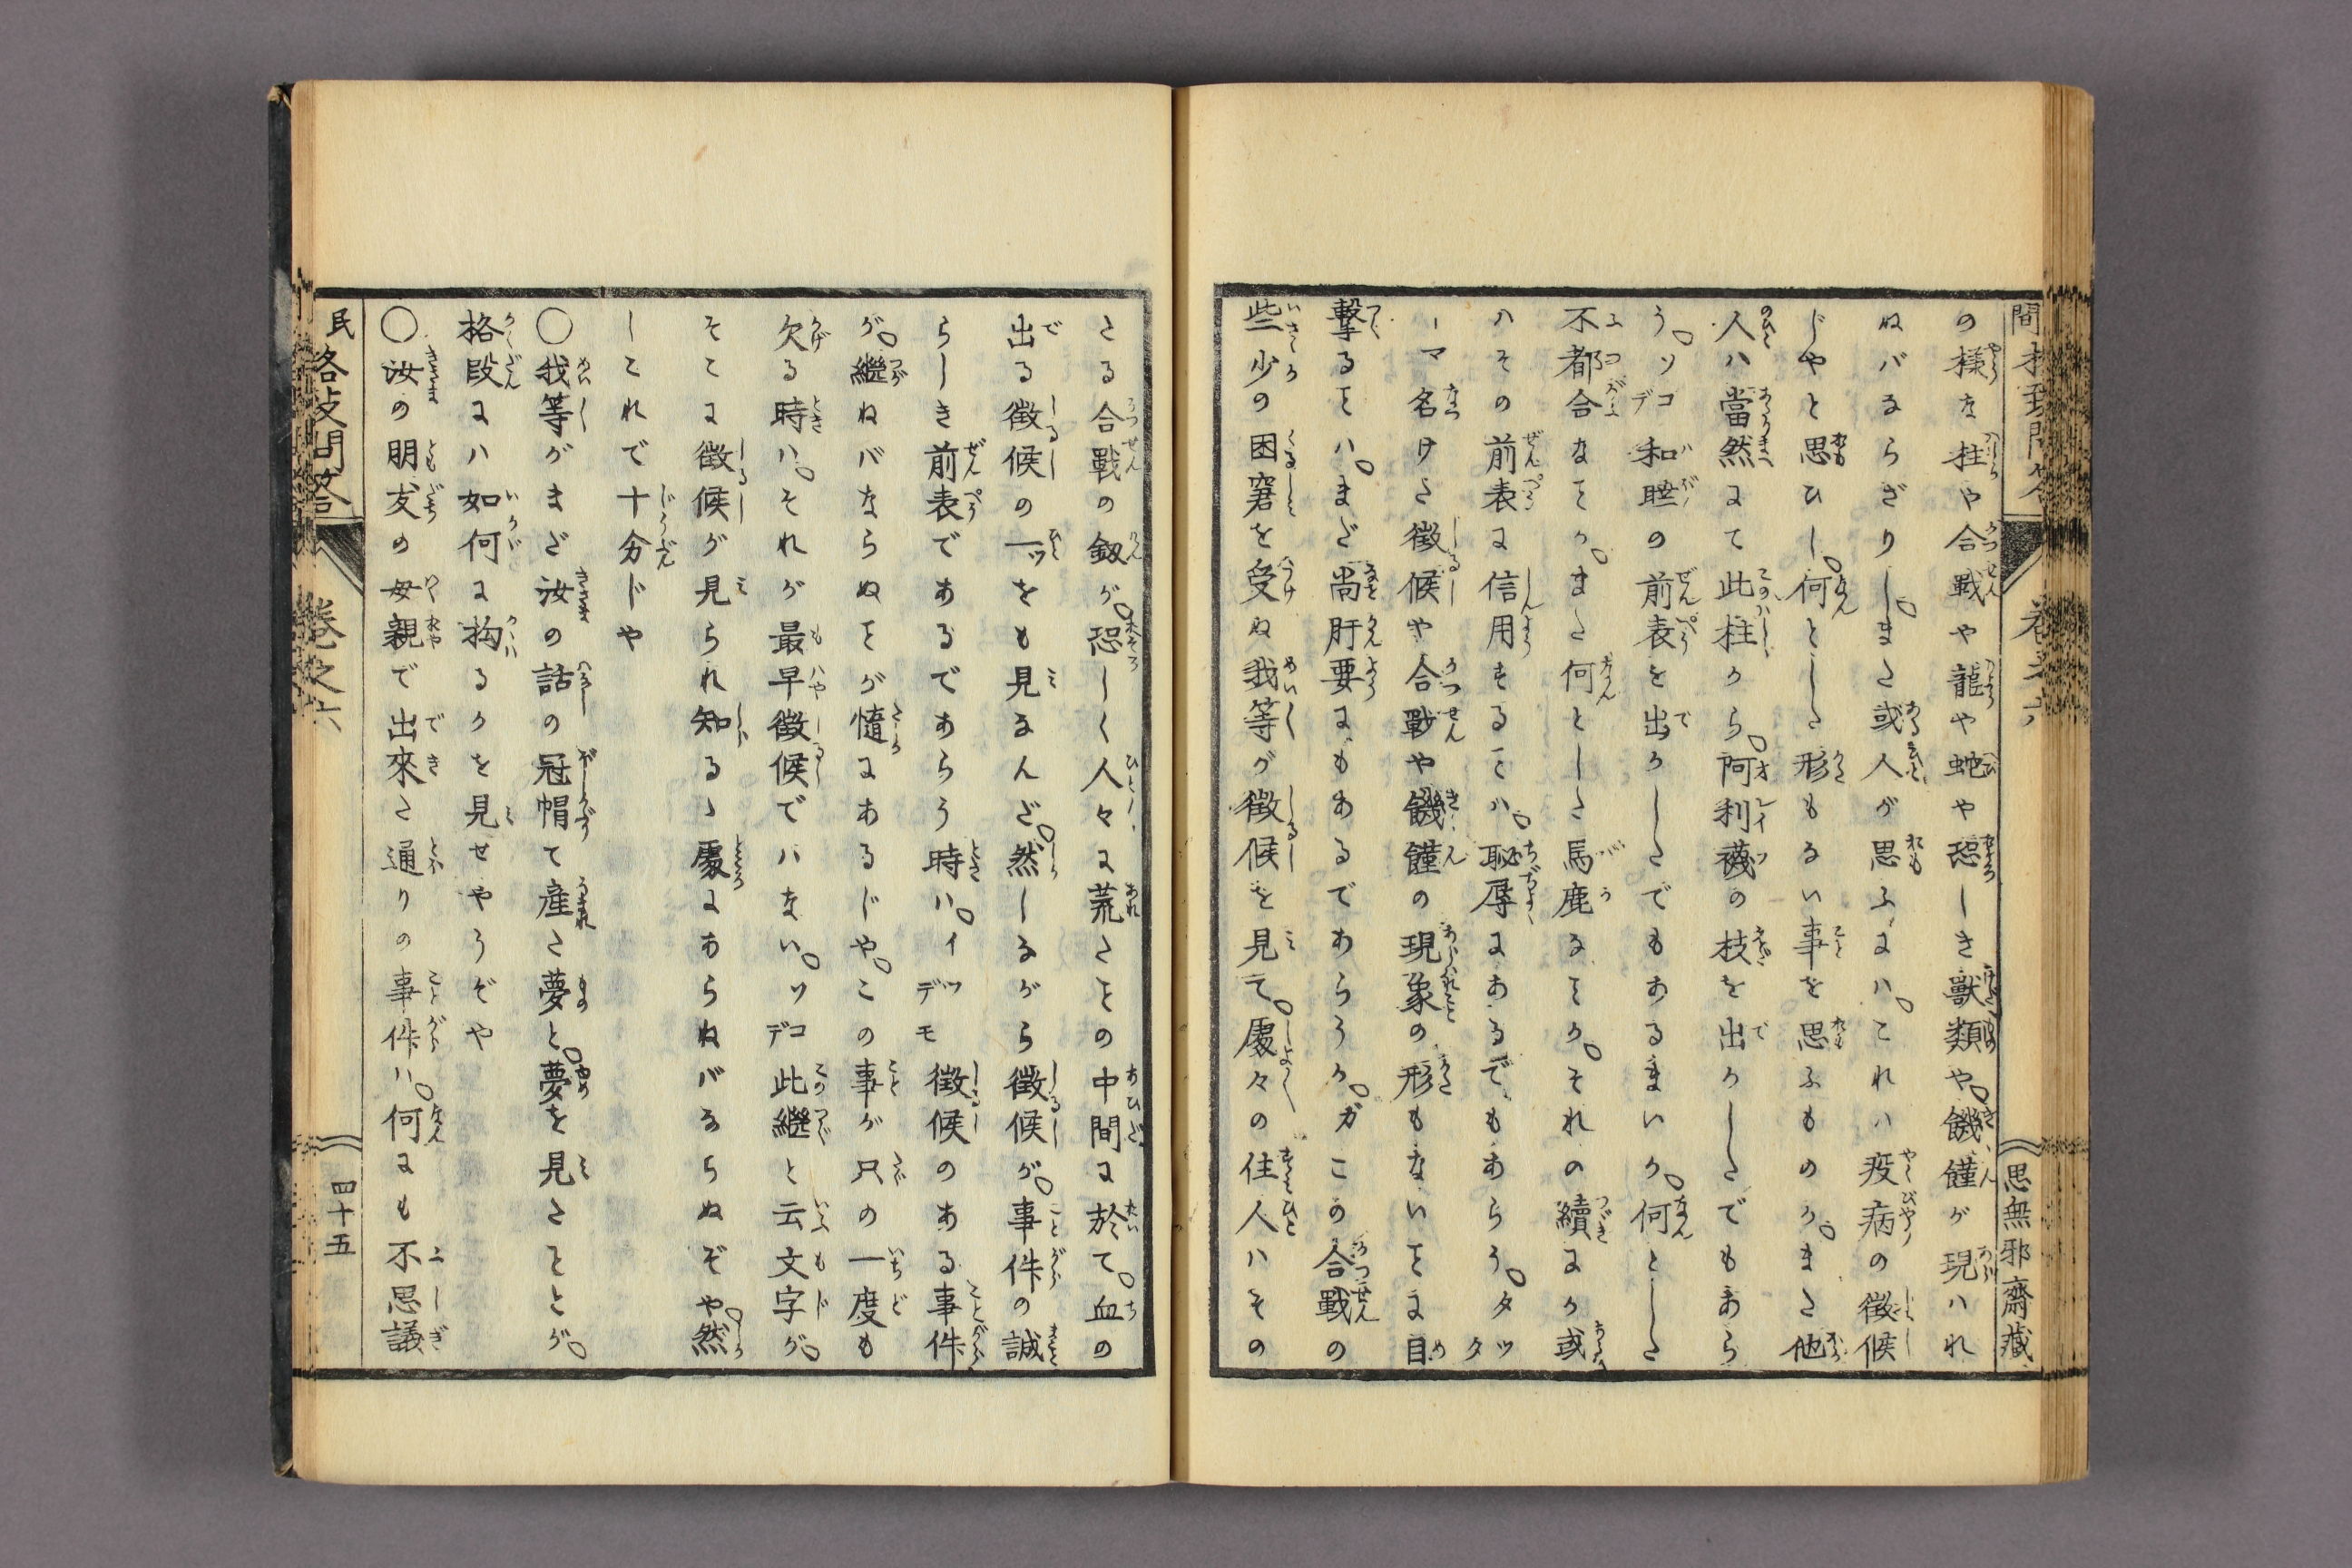 の様な柱や合戰や龍や蛇や恐しき獸類や。饑饉が現ハれ
ねバならざりし。また或人が思ふにハ。これハ疫病の徴候
じやと思ひし。何とした形もない事を思ふものか。また他
人ハ當然にて此柱から。阿利襪の枝を出かしたでもあら
う。ソコデ和睦の前表を出かしたでもあるまいか。何とした
不都合なことか。また何とした馬鹿なことか。それの續にか或
ハその前表に信用することハ。恥辱にあるでもあらう。タッタ
一マ名けた徴候や合戰や饑饉の現象の形もないことに目
撃ることハ。まだ尚肝要にもあるであらうか。ガこの合戰の
些少の困窘を受ぬ我等が徴候を見て。處々の住人ハその
間
卷之六
思無邪齋藏
さる合戰の釼が。恐しく人々に荒たことの中間に於て。血の
出る徴候の一ツをも見なんだ。然しながら徴候が。事件の誠
らしき前表であるであらう時ハ。イツデモ徴候のある事件
が。繼ねバならぬことが慥にあるじや。この事が只の一度も
欠る時ハ。それが最早徴候でハない。ソコデ此繼と云文字が。
そこに徴候が見られ知るゝ處にあらねバならぬぞや。然
しこれで十分じや
〇我等がまだ汝の話の冠帽て産た夢と。夢を見たことが。
格段にハ如何に拘るかを見せやうぞや
〇汝の朋友の母親で出來た通りの事件ハ。何にも不思議
民
卷之六
四十五